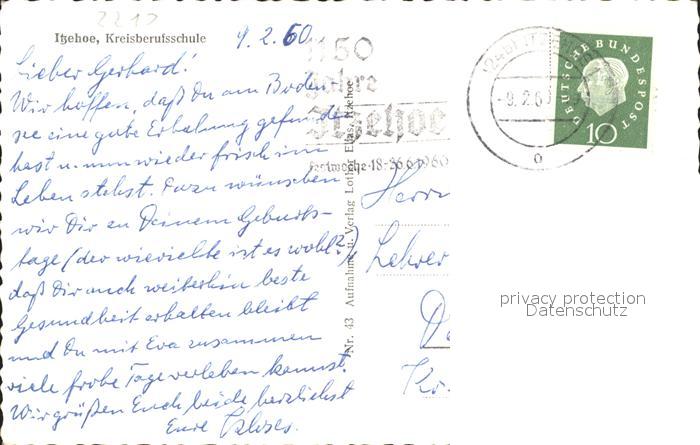 2212
Itzehoe, Kreisberufsschule
9.2.60
Lieber Gerhard!
Wir hoffen, daß Du am Boden-
see eine gute Erholung gefunden
hast u. nun wieder frisch im
Leben stehst. Dazu wünschen
wir Dir zu Deinem Geburts-
tage (der wievielte ist es wohl?)
daß Dir auch weiterhin beste
Gesundheit erhalten bleibt
und Du mit Eva zusammen
viele frohe Tage verleben kannst.
Wir grüßen Euch beide herzlichst
Eure
Nr. 43 Aufnahme u. Verlag Lothar Elias, Itzehoe
1150
Jahre
Itzehoe
Festwoche 18.-26.6.1960
-9.2.60
DEUTSCHE BUNDESPOST
10
Herrn
Lehrer
Kr.
privacy protection
Datenschutz